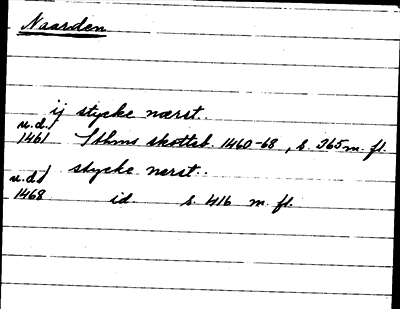 Naarden
ij stycke nærst.
u.d.
1461 Sthms skotteb. 1460-68, s. 365 m. fl.
1 stycke nerst..
u.d.
1468 id. s. 416 m. fl.